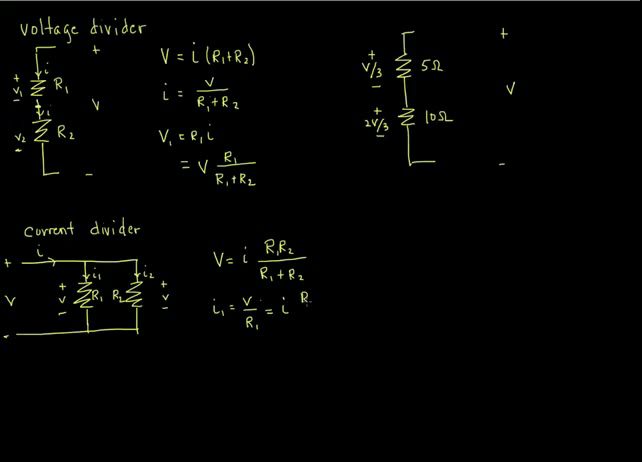 voltage divider
+
i
+ V₁ -
R₁
i
V
V₂ -
R₂
-
V = i (R₁+R₂)
i = V / R₁+R₂
V₁ = R₁ i
= V R₁ / R₁+R₂
+ V/3 -
5Ω
+ 2V/3 -
10Ω
+
V
-
current divider
i
+
V
-
i₁
+ V -
R₁
R₂
i₂
+ V -
V = i R₁R₂ / R₁+R₂
i₁ = V / R₁ = i R